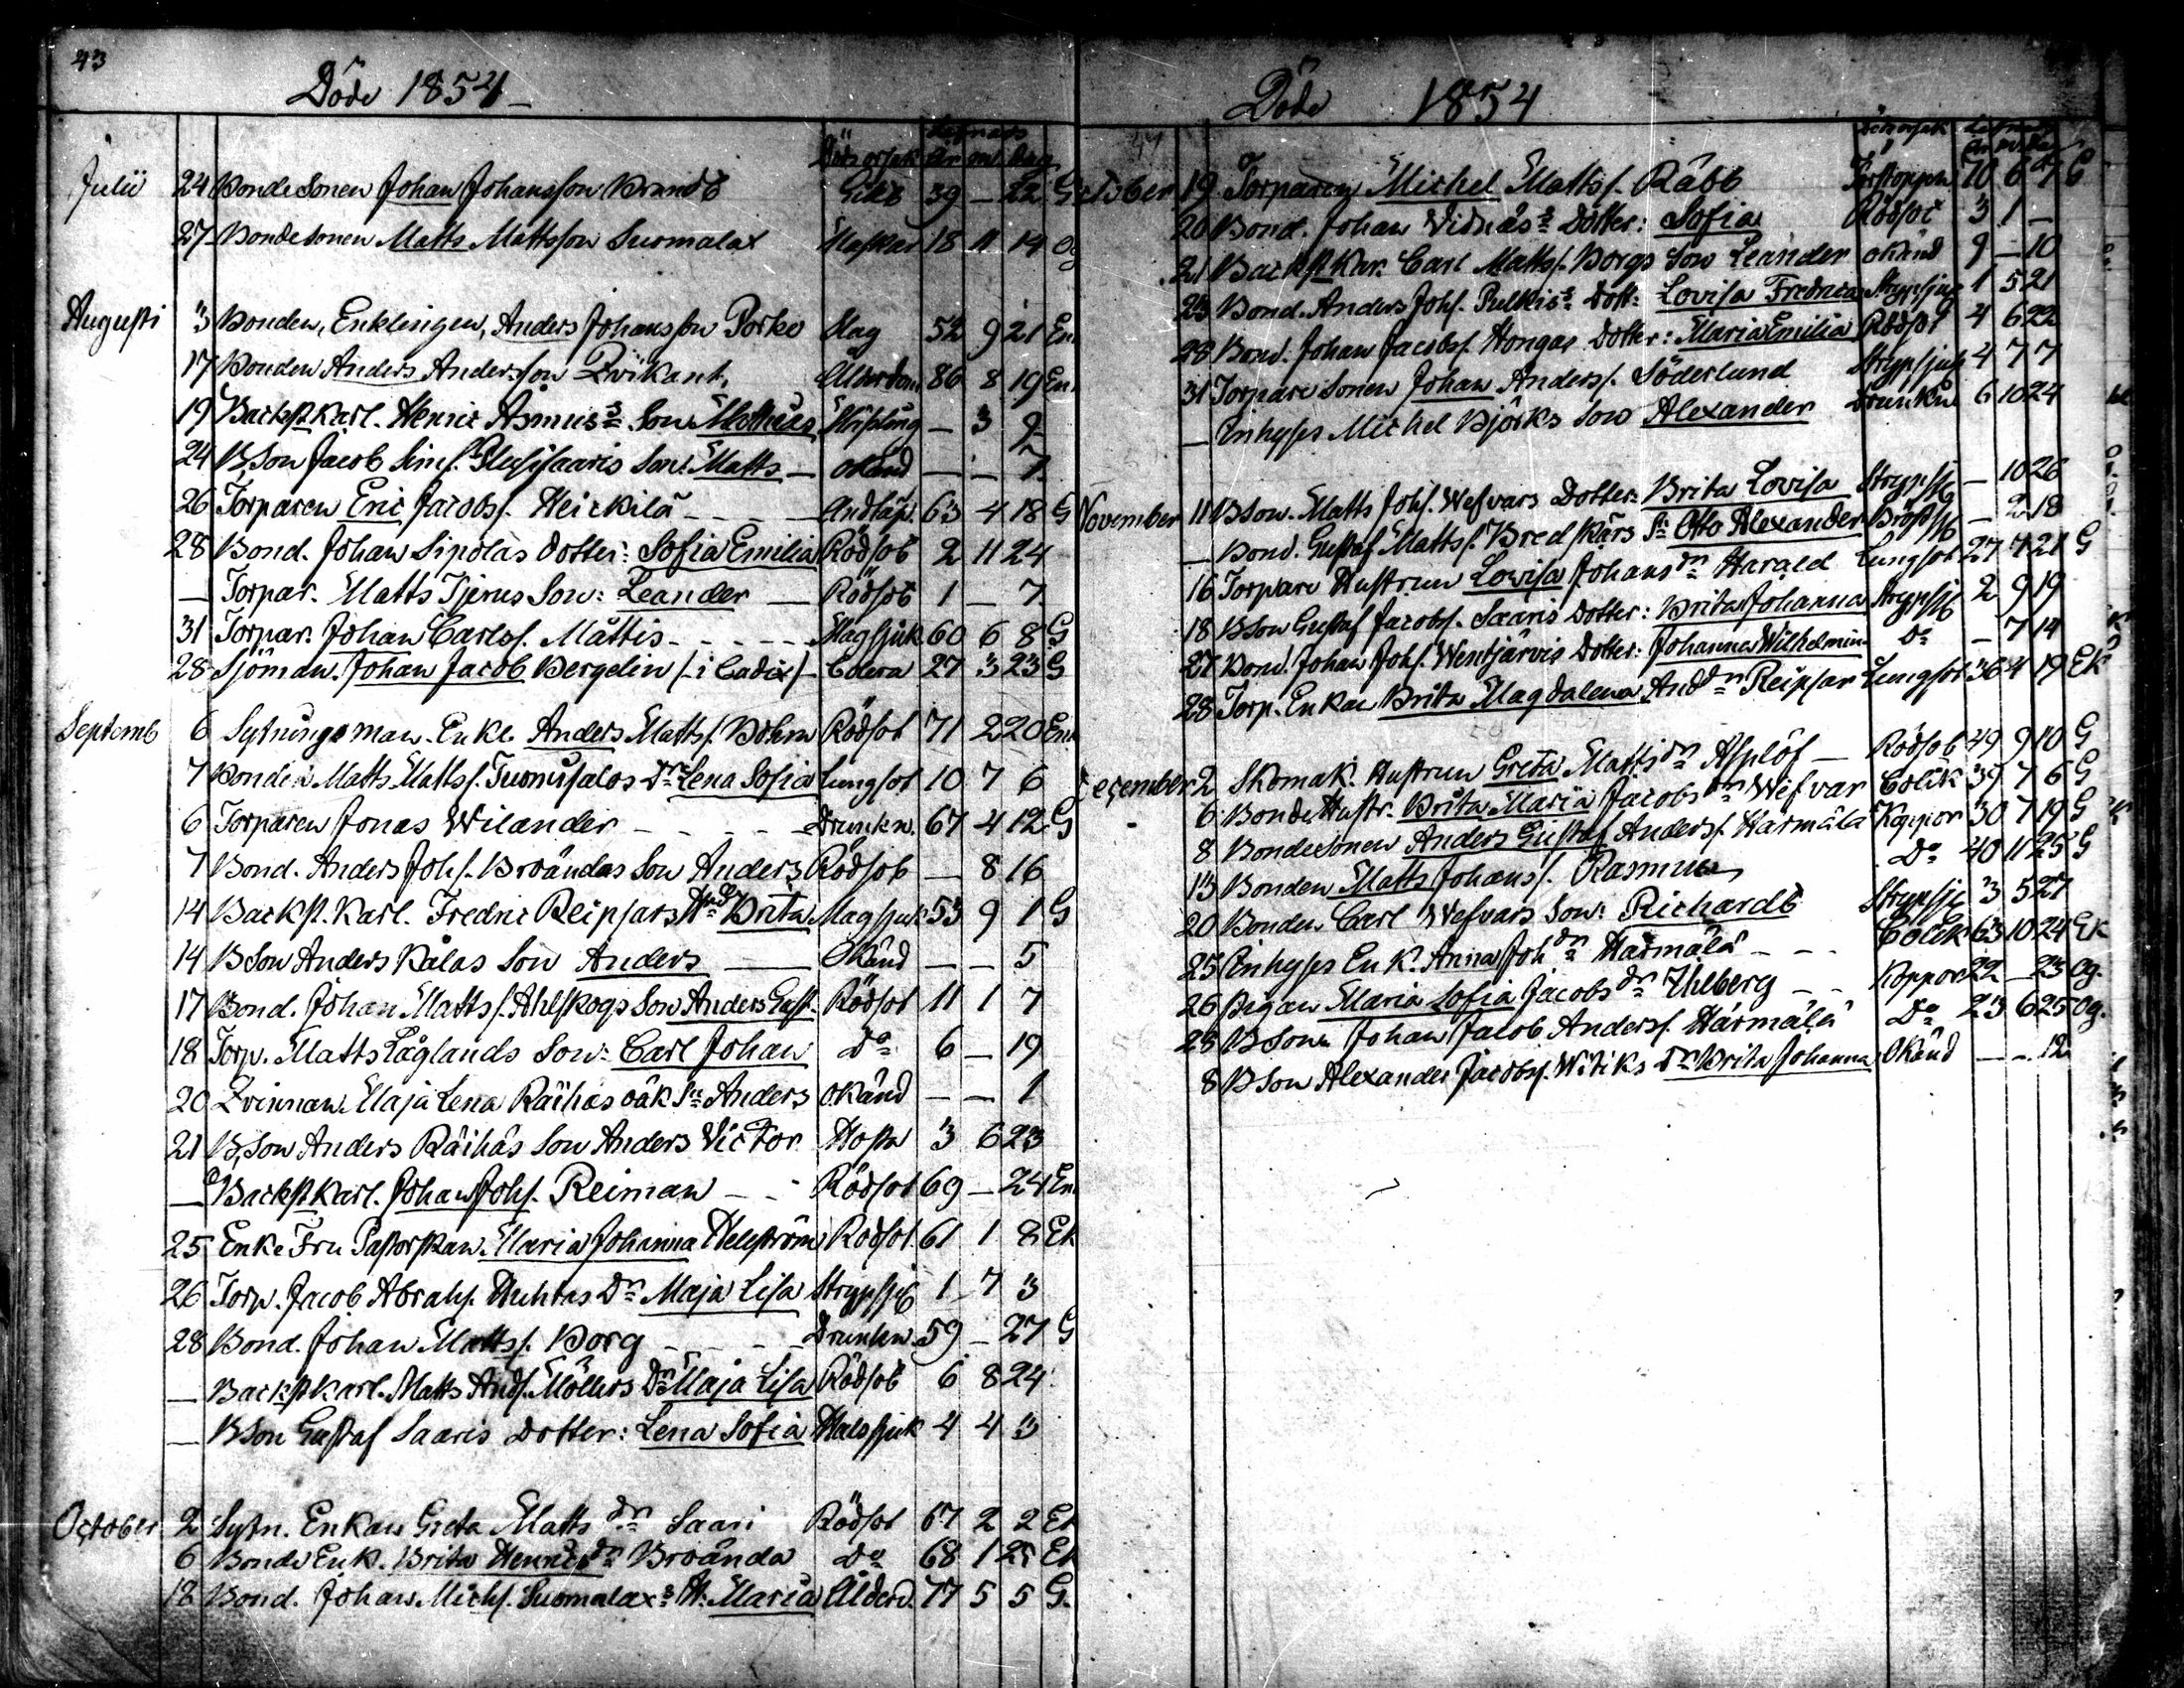 43
Döde 1854
Dödsorsak Lefnads År M. Dag
Julii 24 Bondesonen Johan Johansson Brandt Gikt 39 — 22 G
27 Bondesonen Matts Mattsson Suomalax 18 11 14 Og
Augusti 3 Bonden, Enklingen, Anders Johansson Porko Mag 52 9 21 Enk
17 Bonden Anders Andersson Zwikant. Ålderdom 86 8 19 Enk
19 Backst.karl. Henric Asmus's Son Mathias — 3 9
24 B.Son Jacob Sims. Slussaaris Son: Matts — Okänd — — 7
26 Torparen Eric Jacobs. Heickilä — Andtäp. 63 4 18 G
28 Bond. Johan Sipolas dotter: Sofia Emilia Rödsot 2 11 24
— Torpar. Matts Tjerus Son: Leander — Rödsot 1 — 7
31 Torpar. Johan Carlss. Måttis Magsjuk 60 6 8 G
28 Sjöman. Johan Jacob Bergelin /-i Cadix/- Colera 27 3 23 G
Septemb 6 Sytningsman. Enkl. Anders Matts. Böhm Rödsot 71 2 20 Enk
7 Bonden Matts Matts. Tuomisalos Dr Lena Sofia Lungsot 10 7 6
6 Torparen Jonas Wilander Drunkn. 67 4 12 G
7 Bond. Anders Johs. Broändas Son Anders Rödsot — 8 16
14 Backst.karl. Fredric Reipsars Hu Brita Magsjuk 53 9 1 G
14 BSon Anders Kålas Son Anders Okänd — — 5
17 Bond. Johan Matts. Ahlskogs Son Anders Gust. Rödsot 11 1 7
18 Torp. Matts Låglands Son: Carl Johan Do 6 — 19
20 Qvinnan. Maja Lena Räihäs oäk Sn Anders Okänd — — 1
21 B.Son Anders Räihäs Son Anders Victor Hosta 3 6 23
— Backst.karl. Johan Johs. Reiman Rödsot 69 — 24 Enk
25 Enke Fru Pastorskan. Maria Johanna Helström Rödsot. 61 1 8 Ek
26 Torp. Jacob Abrahs. Huhtas Dr Maja Lisa Strypsju 1 7 3
28 Bond. Johan Matts. Borg Drunkn. 59 — 27 G
— Backst.karl. Matts Ands. Möllers Dr Maja Lisa Rödsot 6 8 24
— BSon Gustaf Saaris Dotter: Lena Sofia Halssjuk 4 4 3
October 2 Sytn. Enkan Greta Matts dr Saari Rödsot 67 2 2 Ek
6 Bonde Enk. Brita Henricsdr Broända Do 68 1 25 Ek
12 Bond. Johan Michs. Suomalax's H. Maria Ålderd. 77 5 5 G.
44
Döde 1854
Dödsorsak Lefnads År M. Dag
October 19 Torparen Michel Matts. Räbb Förstoppn 70 6 7 G
20 Bond. Johan Vidnäs's Dotter: Sofia Rödsot 3 1 —
21 Backst.kar. Carl Matts. Borgs Son Leander okänd 9 — 10
23 Bond. Anders Johs. Pulkis's Dott: Lovisa Fredrica Strypsjuk 1 5 21
28 Bond. Johan Jacobs. Hongas Dotter: Maria Emilia Rödsot 4 6 22
31 Torparesonen Johan Anders. Söderlund Strypsjuk 4 7 7
— Inhyses Michel Björks Son Alexander Drunkn 6 10 24
November 11 BSon. Matts Johs. Wefvars Dotter: Brita Lovisa Strypsj — 10 26
— Bond. Gustaf Matts. Bredskärs Sn Otto Alexander Bröstsj — 2 18
16 Torpare Hustrun Lovisa Johansdr Harald Lungsot 27 7 21 G
18 BSon Gustaf Jacobs. Saaris Dotter: Brita Johanna Strypsj 2 9 19
27 Bond. Johan Johs. Wentjärvis Dotter: Johanna Wilhelmin Do — 7 14
28 Torp. Enkan Brita Magdalena Anddr Reipsar Lungsot 36 4 19 Ek
December 2 Skomak. Hustrun Greta Mattsdr Asplöf — Rödsot 49 9 10 G
6 BondeHustr. Brita Maria Jacobsdr Wefvar Colik 39 7 6 G
8 Bondesonen Anders Gustaf Anders. Harmälä Koppor 30 7 19 G
13 Bonden Matts Johans. Rasmus Do 40 11 25 G
20 Bonden Carl Wefvars Son: Richardt Strypsj 3 5 27
25 Inhyses Enk. Anna Joh dr Harmälä Colik 63 10 24 Ek
26 Pigan Maria Sofia Jacobsdr Uhlberg Koppor 22 — 23 Og.
28 BSon Johan Jacob Anders. Härmälä Do 23 6 25 Og.
8 BSon Alexander Jacobs. Witiks Dr Brita Johanna Okänd — — 12